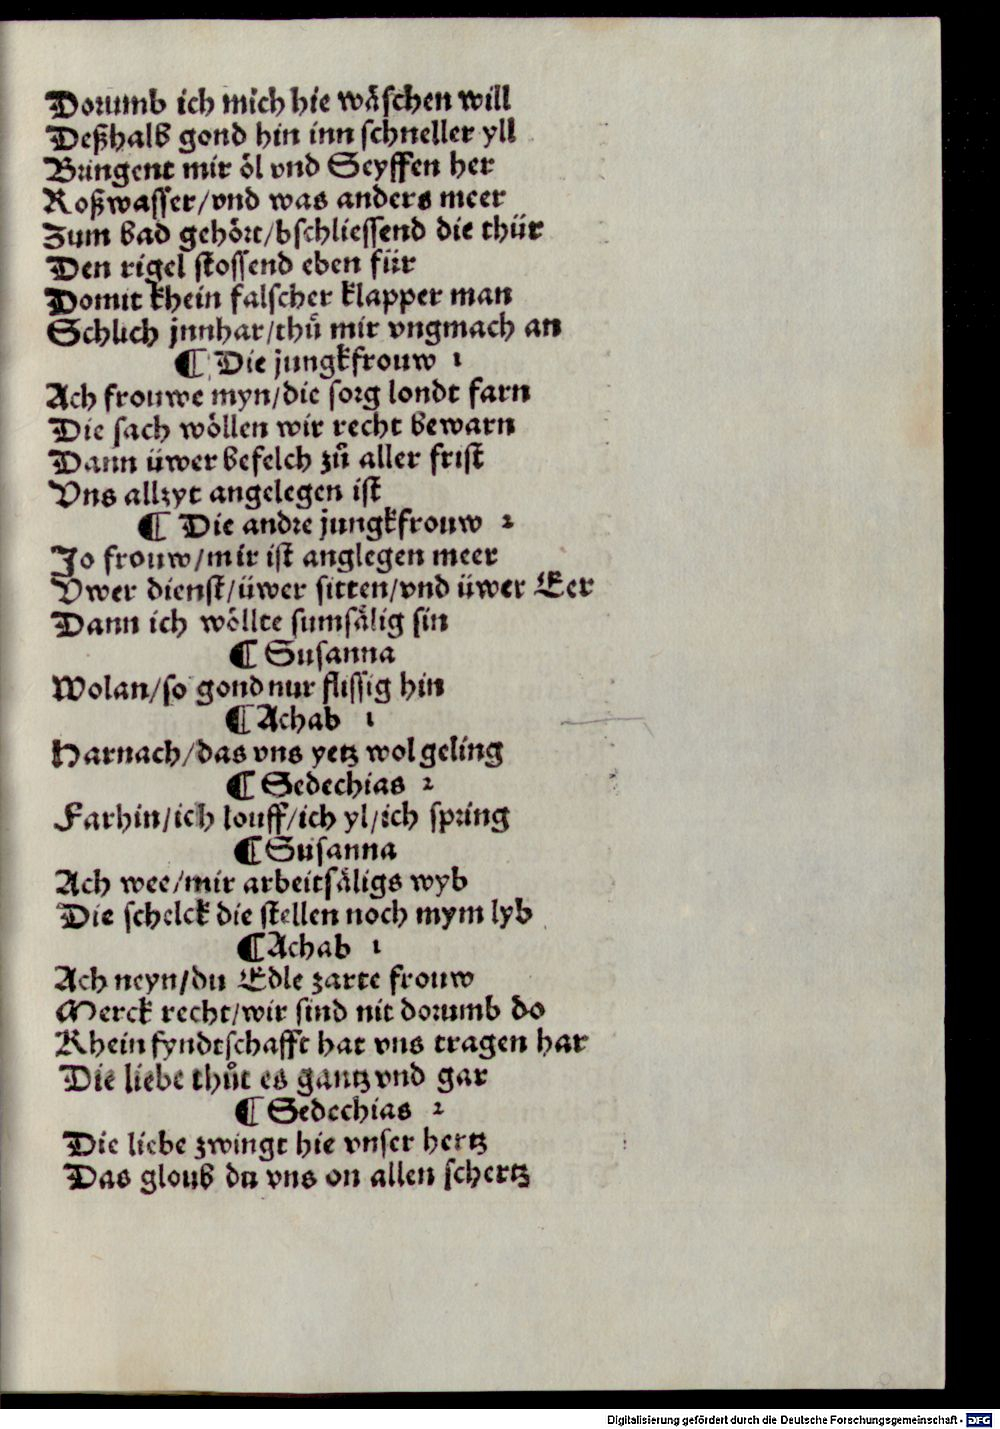 Dorumb ich mich hie wäschen will
Deßhalb gond hin inn schneller yll
Bringent mir öl vnd Seyffen her
Roßwasser/vnd was anders meer
Zum bad gehört/bschliessend die thür
Den rigel stossend eben für
Domit khein falscher klapper man
Schlich jnnhar/thů mir vngmach an
¶ Die jungkfrouw 1
Ach frouwe myn/die sorg londt farn
Die sach wöllen wir recht bewarn
Dann üwer befelch zů aller frist
Vns allzyt angelegen ist
¶ Die andre jungkfrouw 2
Jo frouw/mir ist anglegen meer
Vwer dienst/üwer sitten/vnd üwer Eer
Dann ich wöllte sumsälig sin
¶ Susanna
Wolan/so gond nur flissig hin
¶ Achab 1
Harnach/das vns yetz wol geling
¶ Sedechias 2
Farhin/ich louff/ich yl/ich spring
¶ Susanna
Ach wee/mir arbeitsäligs wyb
Die schelck die stellen noch mym lyb
¶ Achab 1
Ach neyn/du Edle zarte frouw
Merck recht/wir sind nit dorumb do
Khein fyndtschafft hat vns tragen har
Die liebe thůt es gantz vnd gar
¶ Sedechias 2
Die liebe zwingt hie vnser hertz
Das gloub du vns on allen schertz
Digitalisierung gefördert durch die Deutsche Forschungsgemeinschaft - DFG